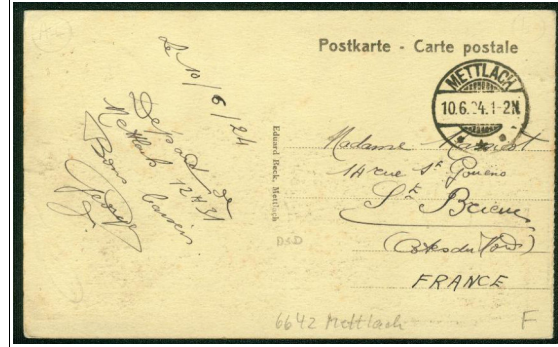 Postkarte - Carte postale
METTLACH
10.6.24.1-2N
Le 10/6/24
Départ de
Mettlach 12H31
Bons baisers
Eduard Beck, Mettlach
Madame
14 rue St
St Brieuc
(Côtes du Nord)
FRANCE
D&D
6642 Mettlach
F